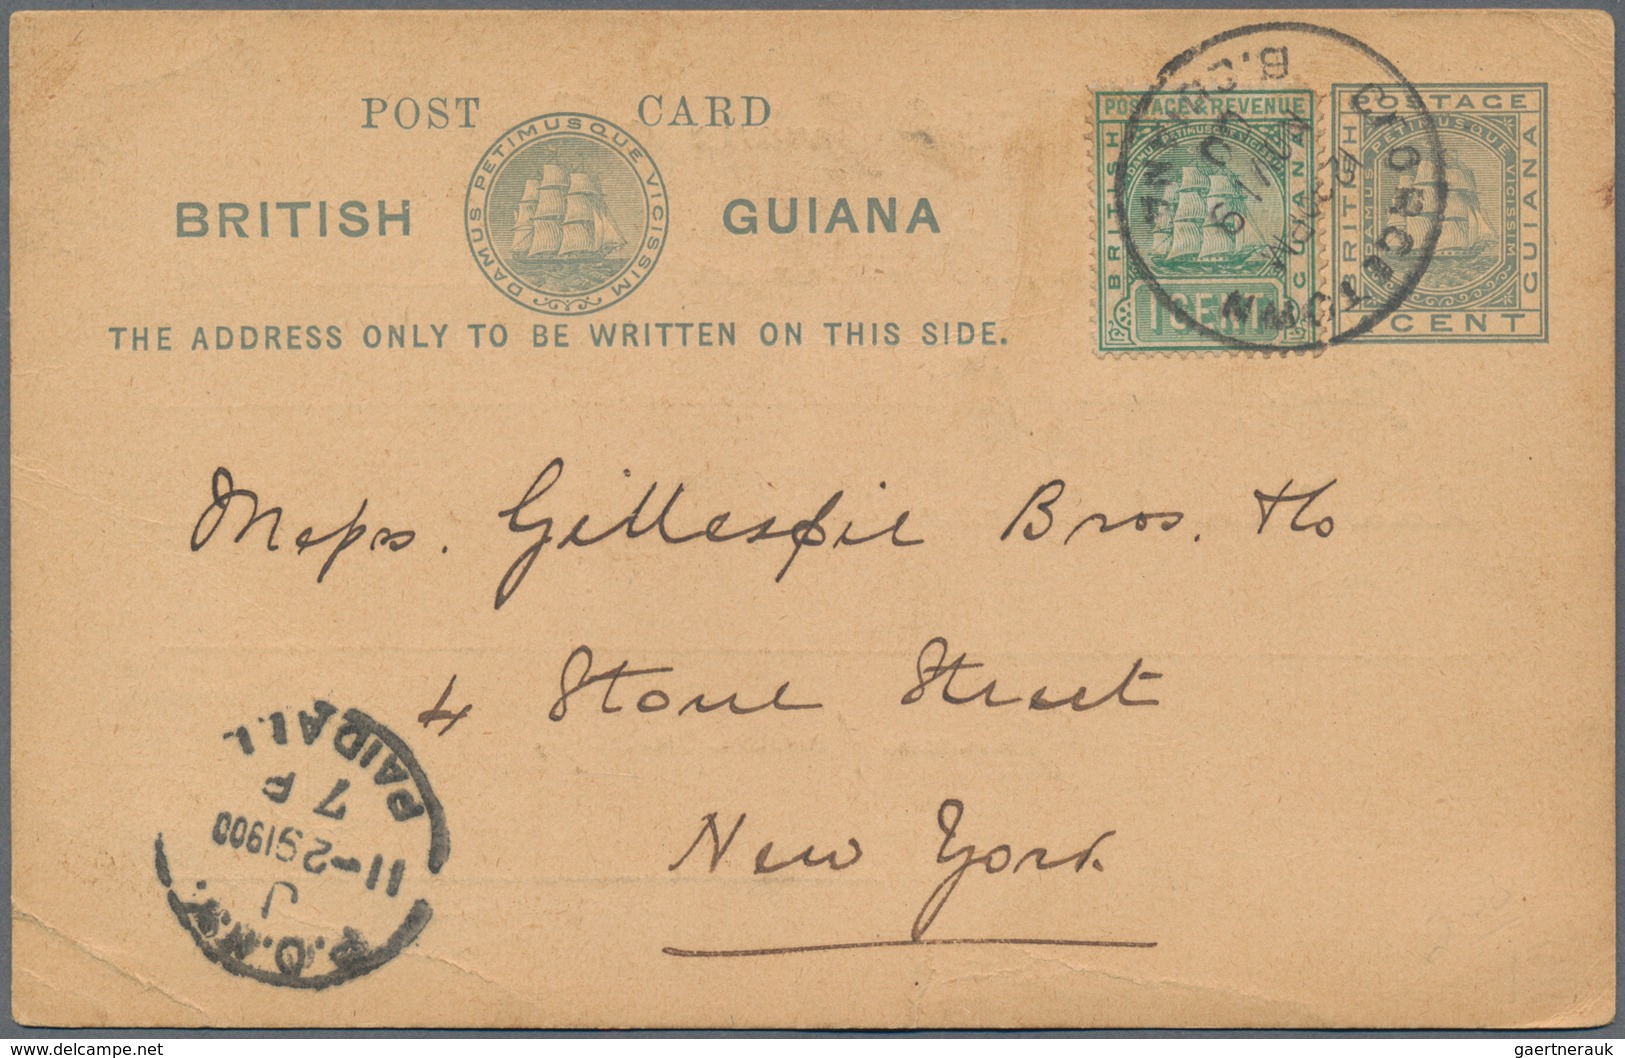 POST CARD
BRITISH GUIANA
DAMUS PETIMUSQUE VICISSIM
THE ADDRESS ONLY TO BE WRITTEN ON THIS SIDE.
POSTAGE & REVENUE
BRITISH
GUIANA
DAMUS PETIMUSQUE VICISSIM
1 CENT
POSTAGE
BRITISH
GUIANA
DAMUS PETIMUSQUE VICISSIM
CENT
GEORGETOWN
Messrs. Gillespie Bros. & Co
4 Stone Street
New York
PAID ALL
7 P
11-291900
J
P.O.N.Y.
www.delcampe.net
gaertnerauk